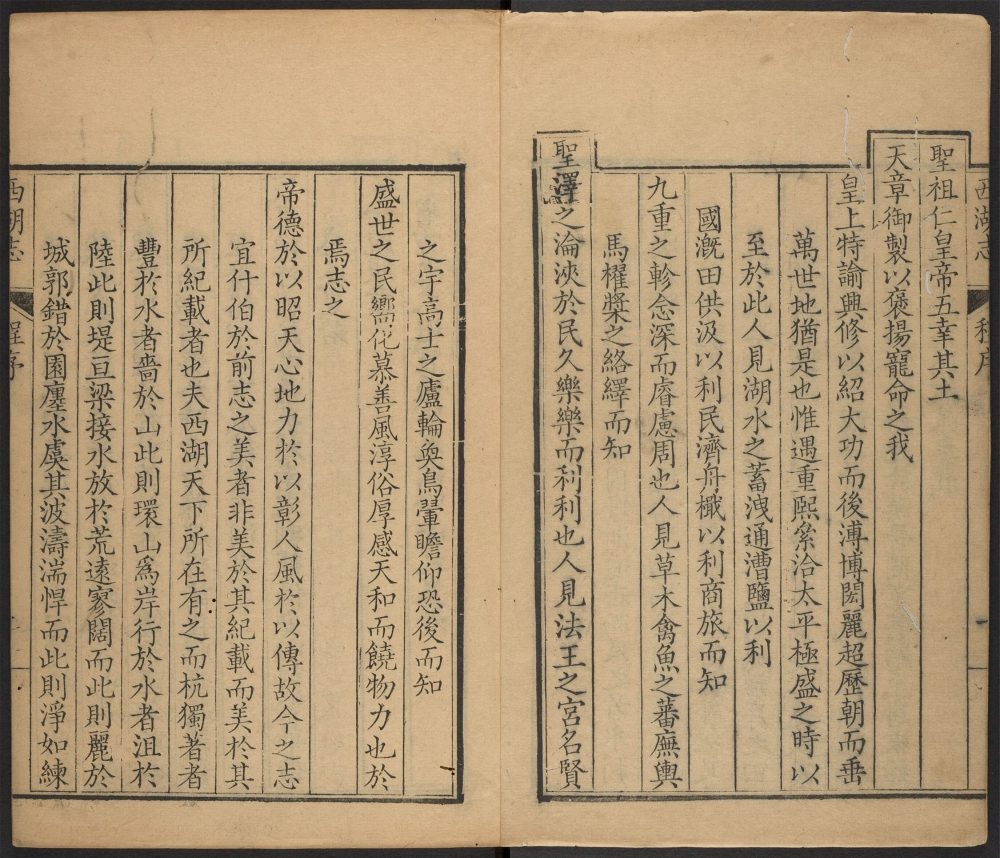 西湖志 程序
聖祖仁皇帝五幸其土
天章御製以褒揚寵命之我
皇上特諭興修以紹大功而後溥博閎麗超歷朝而垂
萬世地猶是也惟遇重熙絫洽太平極盛之時以
至於此人見湖水之蓄洩通漕鹽以利
國溉田供汲以利民濟舟檝以利商旅而知
九重之軫念深而睿慮周也人見草木禽魚之蕃廡輿
馬櫂槳之絡繹而知
聖澤之淪浹於民久樂樂而利利也人見法王之宮名賢
之宇高士之廬輪奐鳥翬瞻仰恐後而知
盛世之民嚮化慕善風淳俗厚感天和而饒物力也於
焉志之
帝德於以昭天心地力於以彰人風於以傳故今之志
宜什伯於前志之美者非美於其紀載而美於其
所紀載者也夫西湖天下所在有之而杭獨著者
豐於水者嗇於山此則環山爲岸行於水者沮於
陸此則堤亘梁接水放於荒遠寥闊而此則麗於
城郭錯於園廛水虞其波濤湍悍而此則淨如練
西湖志 程序